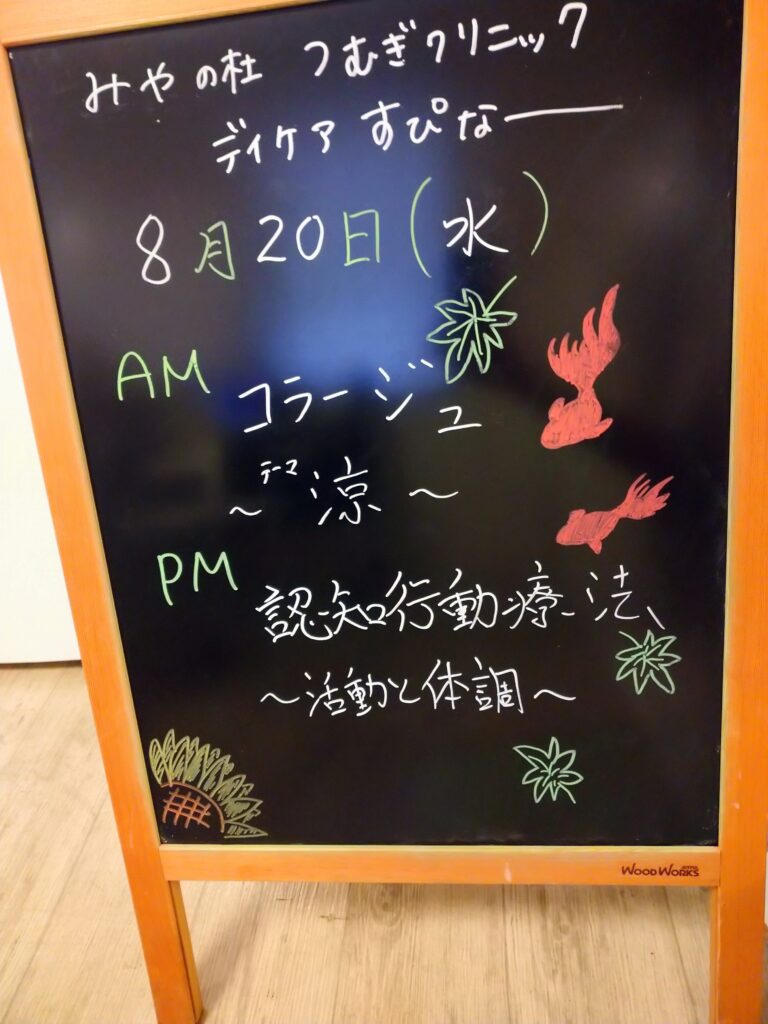 みやの杜 つむぎクリニック
デイケア すぴなー
8月20日(水)
AM コラージュ
～テーマ 涼～
PM 認知行動療法
～活動と体調～
WOOD WORKS